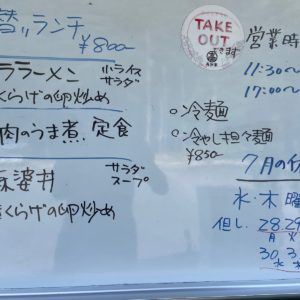 替りランチ
¥800
ラーメン
小ライス
サラダ
くらげの卵炒め
肉のうま煮 定食
サラダ
スープ
麻婆丼
くらげの卵炒め
TAKE
OUT
できます
営業時
11:30~
17:00~
○冷麺
○冷やし担々麺
¥850
7月の休
水・木 曜
但し、28.29
月 火
30.3
水